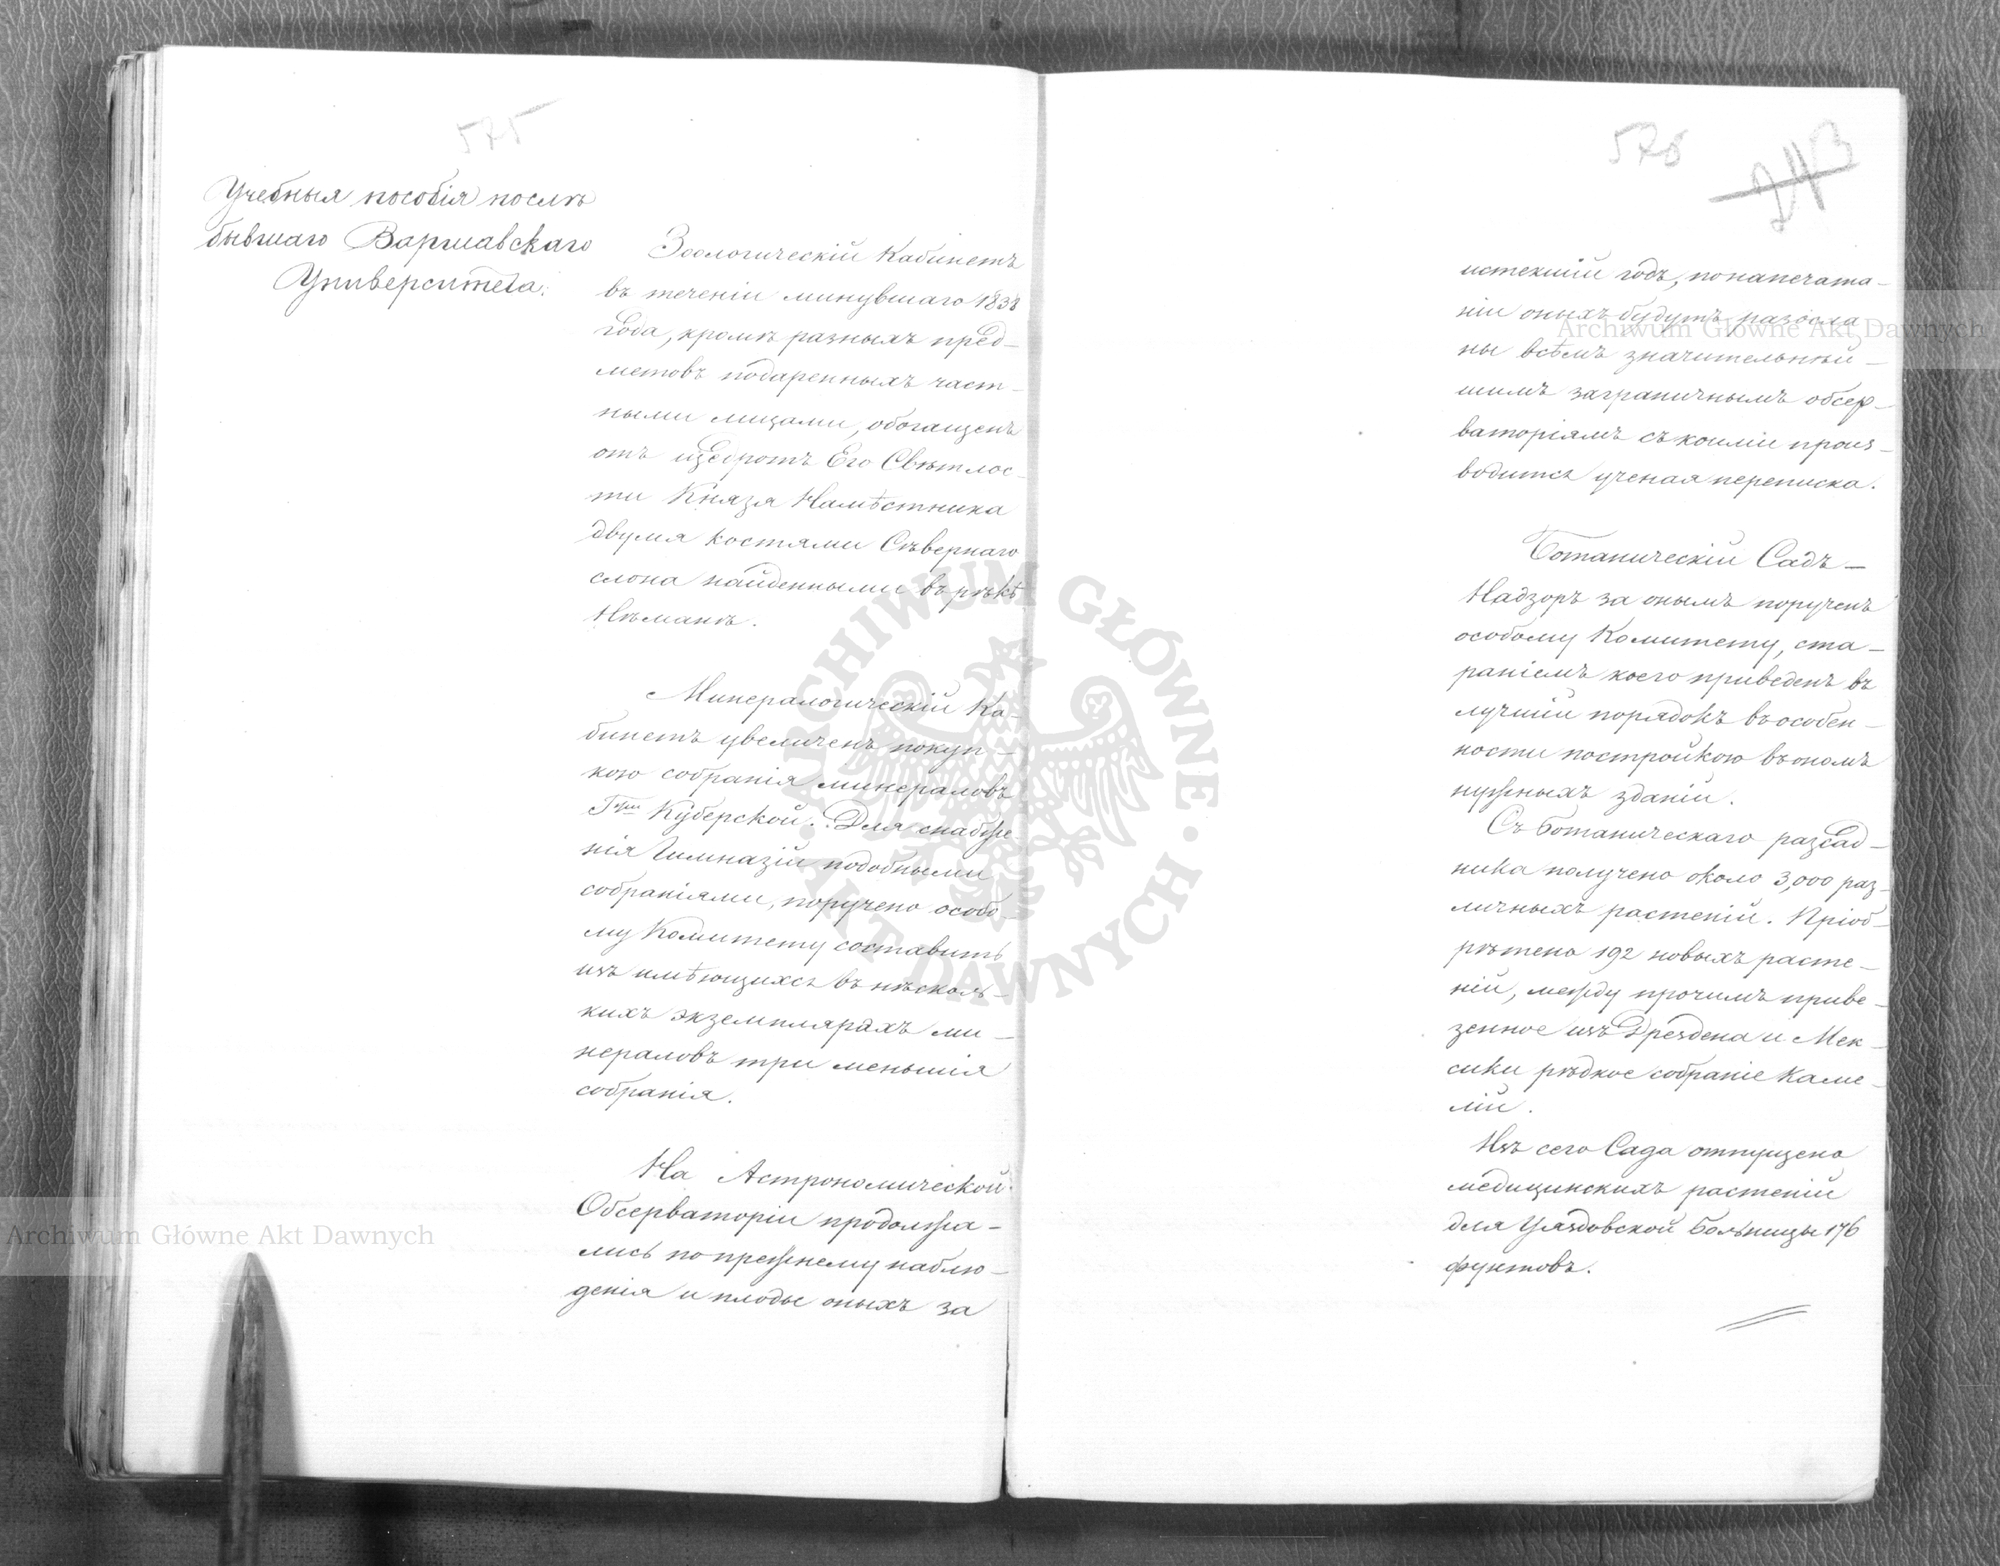 575
Учебныя пособія послѣ
бывшаго Варшавскаго
Университета.
Зоологическій Кабинетъ
въ теченіи минувшаго 1838
года, кромѣ разныхъ пред-
метовъ подаренныхъ част-
ными лицами, обогащенъ
отъ щедротъ Его Свѣтлос-
ти Князя Намѣстника
двумя костями Сѣвернаго
слона найденными въ рѣкѣ
Нѣманѣ.
Минералогическій Ка-
бинетъ увеличенъ покуп-
кою собранія минераловъ
Гжи Куберской. Для снабже
нія Гимназій подобными
собраніями, поручено особо-
му Комитету составить
изъ имѣющихся въ нѣсколь-
кихъ экземплярахъ ми-
нераловъ три меньшія
собранія.
На Астрономической
Обсерваторіи продолжа-
лись по прежнему наблю-
денія и плоды оныхъ за
576
243
истекшій годъ, по напечата-
ніи оныхъ будутъ разосла
ны всѣмъ значительнѣй-
шимъ заграничнымъ обсер-
ваторіямъ съ коими произ-
водится ученая переписка.
Ботаническій Садъ—
Надзоръ за онымъ порученъ
особому Комитету, ста-
раніемъ коего приведенъ въ
лучшій порядокъ въ особен-
ности постройкою въ ономъ
нужныхъ зданій.
Съ ботаническаго разсад-
ника получено около 3,000 раз-
личныхъ растеній. Пріоб-
рѣтено 192 новыхъ расте-
ній, между прочимъ приве-
зенное изъ Дрездена и Мек-
сики рѣдкое собраніе Каме-
лій.
Изъ сего Сада отпущено
медицинскихъ растеній
для Уяздовской Больницы 176
фунтовъ.
Archiwum Główne Akt Dawnych
Archiwum Główne Akt Dawnych
ARCHIWUM GŁÓWNE · AKT DAWNYCH ·